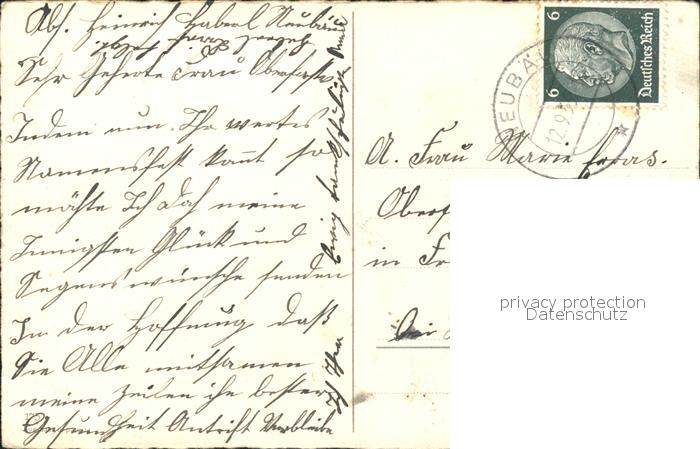 Abs. Heinrich Haberl Neubäu
Sehr Geehrte Frau Oberförster
Indem nun Ihr wertes
Nammensfest kömt so
möchte Ich Doch meine
Innigsten Glück und
Segenswünsche senden
In der Hoffnung daß
Sie Alle mitsamen
meine Zeilen in bester
Gesundheit Antrift Verbleibe
Ich Ihr
Ewig dankschuldige
A. Frau Marie
Oberf
in Fr
bei
6 6
Deutsches Reich
NEUBÄ
12.9.3
privacy protection
Datenschutz